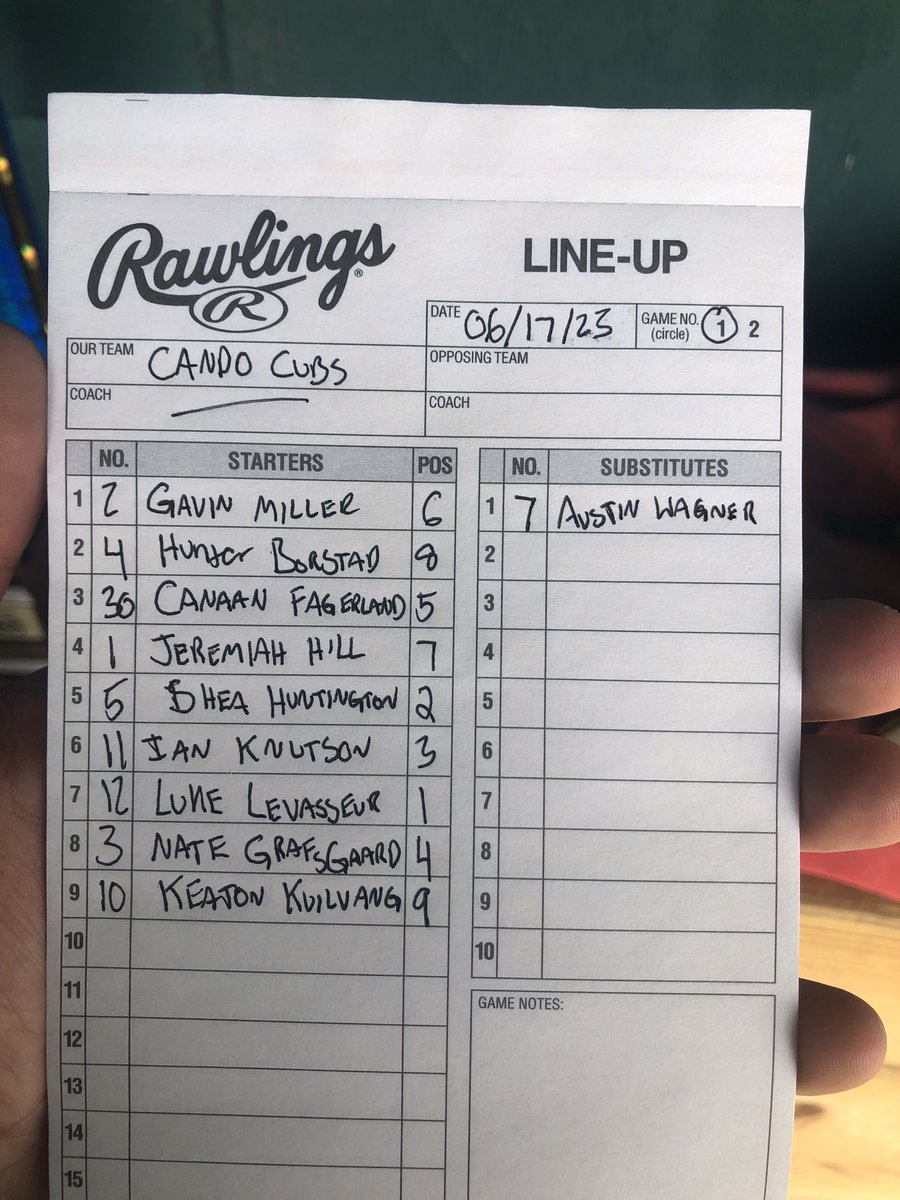 Rawlings®
R
LINE-UP
DATE 06/17/23
GAME NO. (circle) 1 2
OUR TEAM CANDO CUBS
OPPOSING TEAM
COACH
COACH
NO. STARTERS POS
1 2 GAVIN MILLER 6
2 4 Hunter BORSTAD 8
3 30 CANAAN FAGERLAND 5
4 1 JEREMIAH HILL 7
5 5 SHEA HUNTINGTON 2
6 11 IAN KNUTSON 3
7 12 LUKE LEVASSEUR 1
8 3 NATE GRAFSGAARD 4
9 10 KEATON KVILVANG 9
10
11
12
13
14
15
NO. SUBSTITUTES
1 7 AUSTIN WAGNER
2
3
4
5
6
7
8
9
10
GAME NOTES: